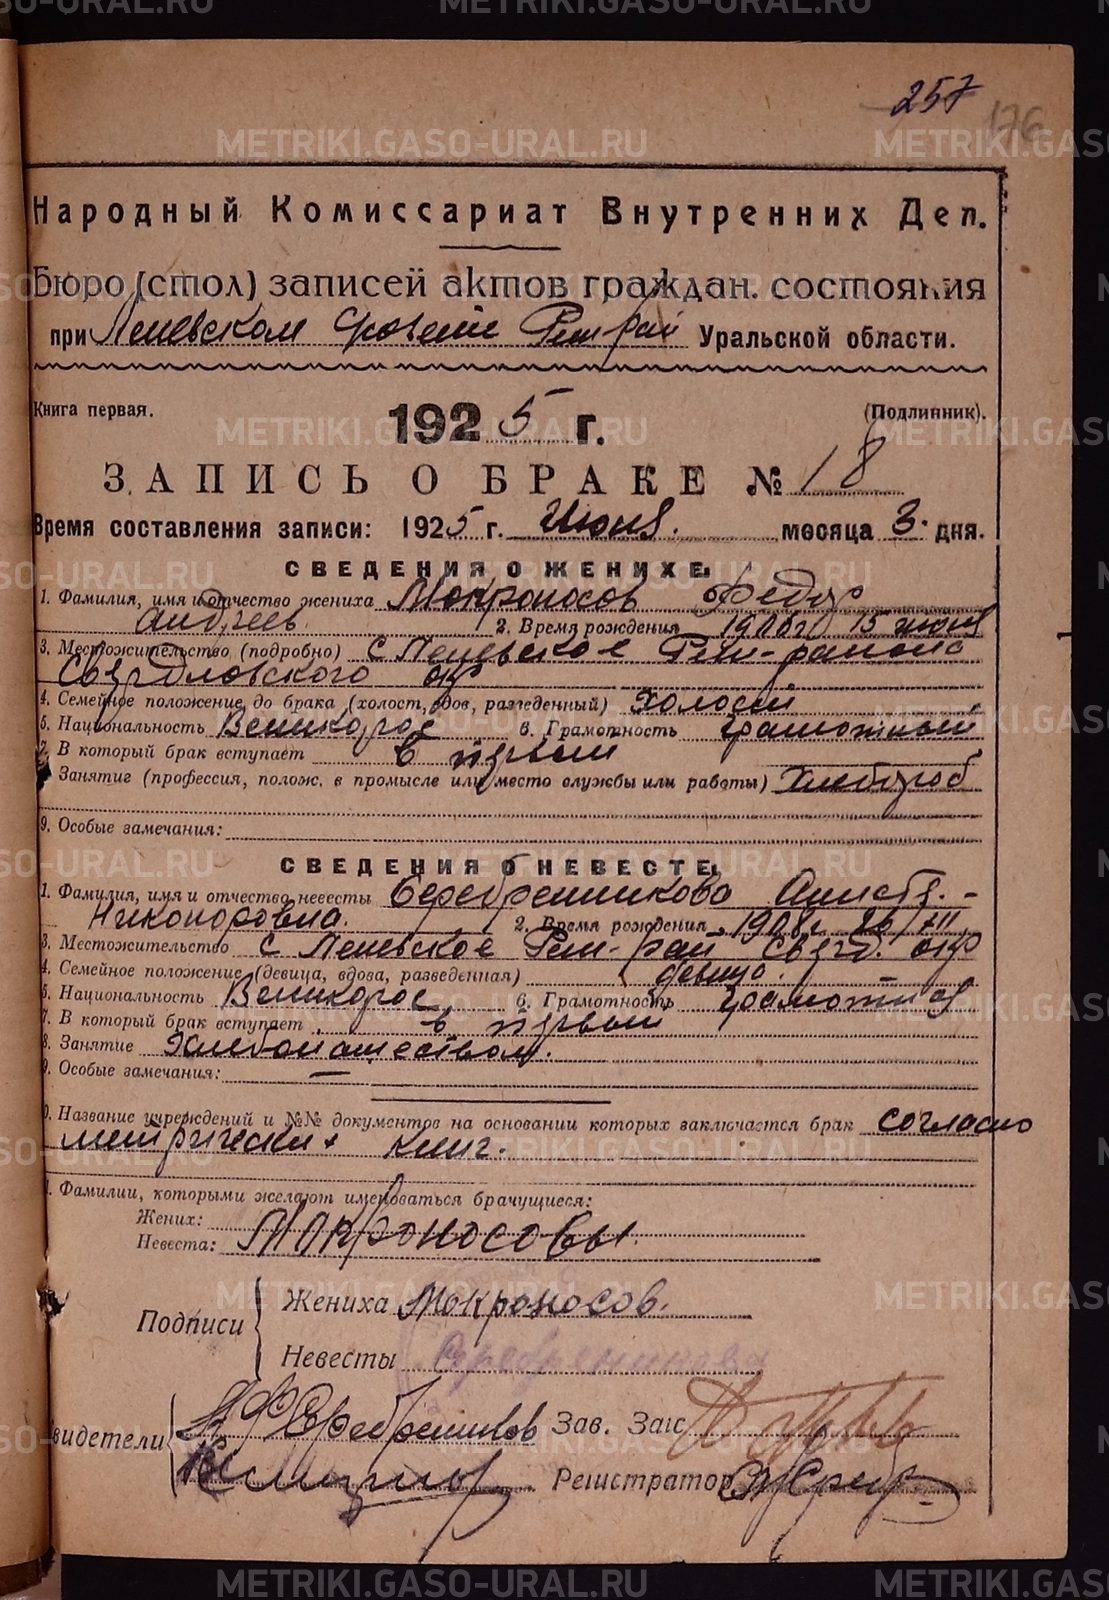 257
176
Народный Комиссариат Внутренних Дел.
Бюро (стол) записей актов граждан. состояния
при Леневском Реж рай Уральской области.
Книга первая. (Подлинник).
1925 г.
ЗАПИСЬ О БРАКЕ № 18
Время составления записи: 1925 г. Июня. месяца 3. дня.
СВЕДЕНИЯ О ЖЕНИХЕ.
1. Фамилия, имя и отчество жениха Мокроносов Федор
Андреев 2. Время рождения 15 июня
3. Местожительство (подробно) с Леневское Реж-района
Свердловского окр
4. Семейное положение до брака (холост, вдов, разведенный) Холостй
5. Национальность Великорос 6. Грамотность грамотный
7. В который брак вступает в первый
Занятие (профессия, полож. в промысле или место службы или работы) Хлебороб
9. Особые замечания:
СВЕДЕНИЯ О НЕВЕСТЕ.
1. Фамилия, имя и отчество невесты Серебренникова
Никоноровна. 2. Время рождения 1908 г. 26/XII
3. Местожительство с Леневское Реж-рай Сверд. окр
4. Семейное положение (девица, вдова, разведенная) девица.
5. Национальность Великорос 6. Грамотность грамотная
7. В который брак вступает в первый
8. Занятие Хлебопашеством.
9. Особые замечания: —
0. Название учреждений и №№ документов на основании которых заключается брак согласно
метрически книг.
1. Фамилии, которыми желают именоваться брачущиеся:
Жених:
Невеста: Мокроносовы.
Подписи
Жениха Мокроносов.
Невесты Серебренникова
Свидетели Серебренников Зав. Загс
Регистратор
METRIKI.GASO-URAL.RU